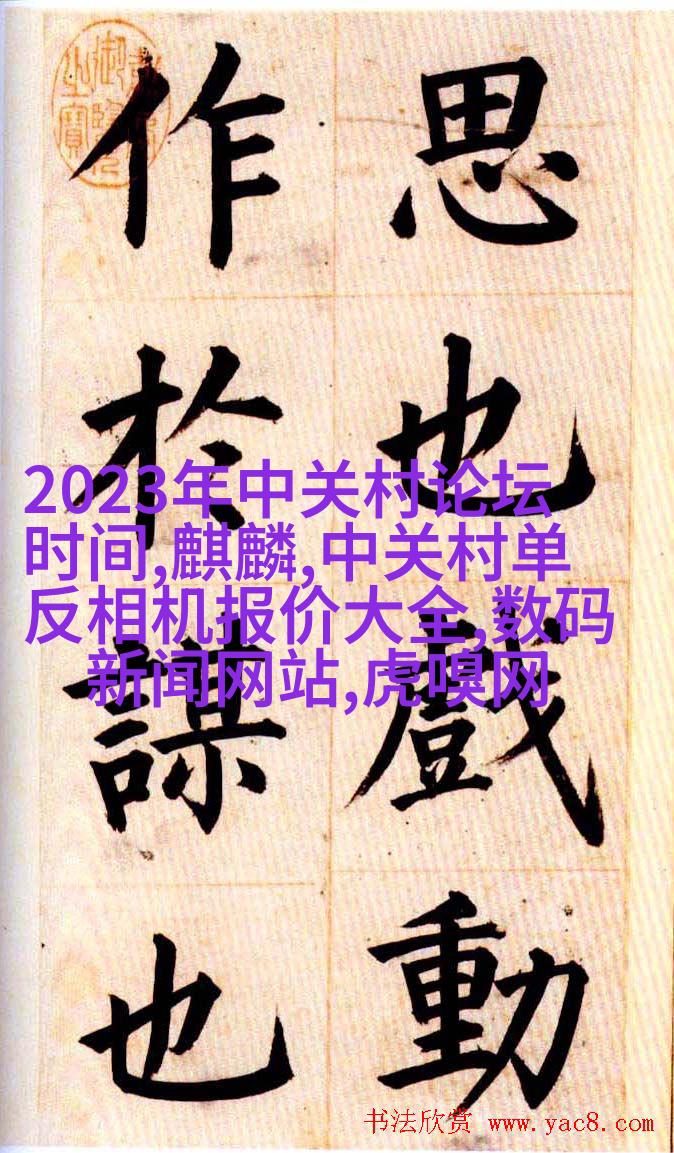 思也戲動
作於謀也
2023年中关村论坛
时间,麒麟,中关村单
反相机报价大全,数码
新闻网站,虎嗅网
书法欣赏 www.yac8.com